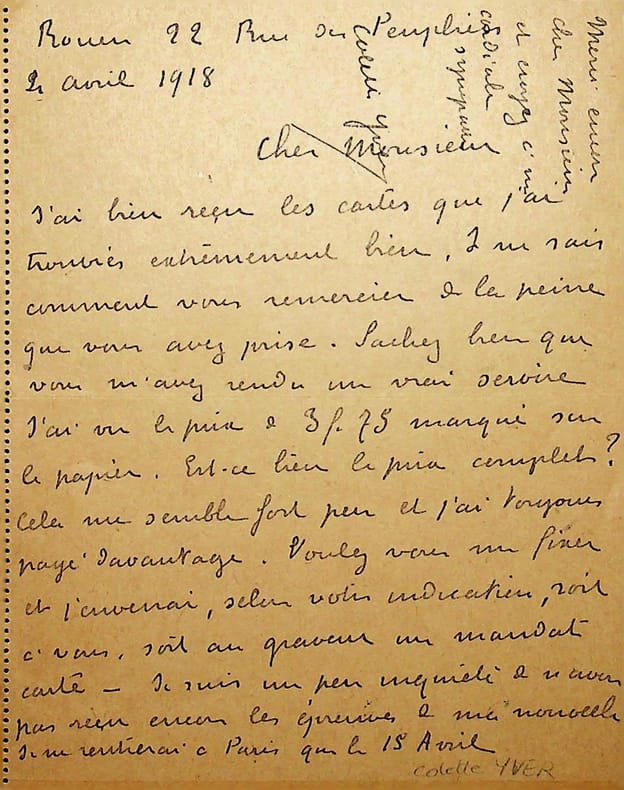 Rouen 22 Rue des Peupliers
2 avril 1918
Cher Monsieur
J'ai bien reçu les cartes que j'ai
trouvées extrêmement bien, Je ne sais
comment vous remercier de la peine
que vous avez prise. Sachez bien que
vous m'avez rendu un vrai service
J'ai vu le prix de 3 f. 75 marqué sur
le papier. Est-ce bien le prix complet?
Cela me semble fort peu et j'ai toujours
payé davantage. Voulez vous me fixer
et j'enverrai, selon votre indication, soit
à vous, soit au graveur un mandat
carte - Je suis un peu inquiète de n'avoir
pas reçu encore les épreuves de ma nouvelle
Je ne rentrerai à Paris que le 15 Avril
Merci encore
cher Monsieur
et croyez à ma
cordiale
sympathie
Colette Yver
Colette YVER